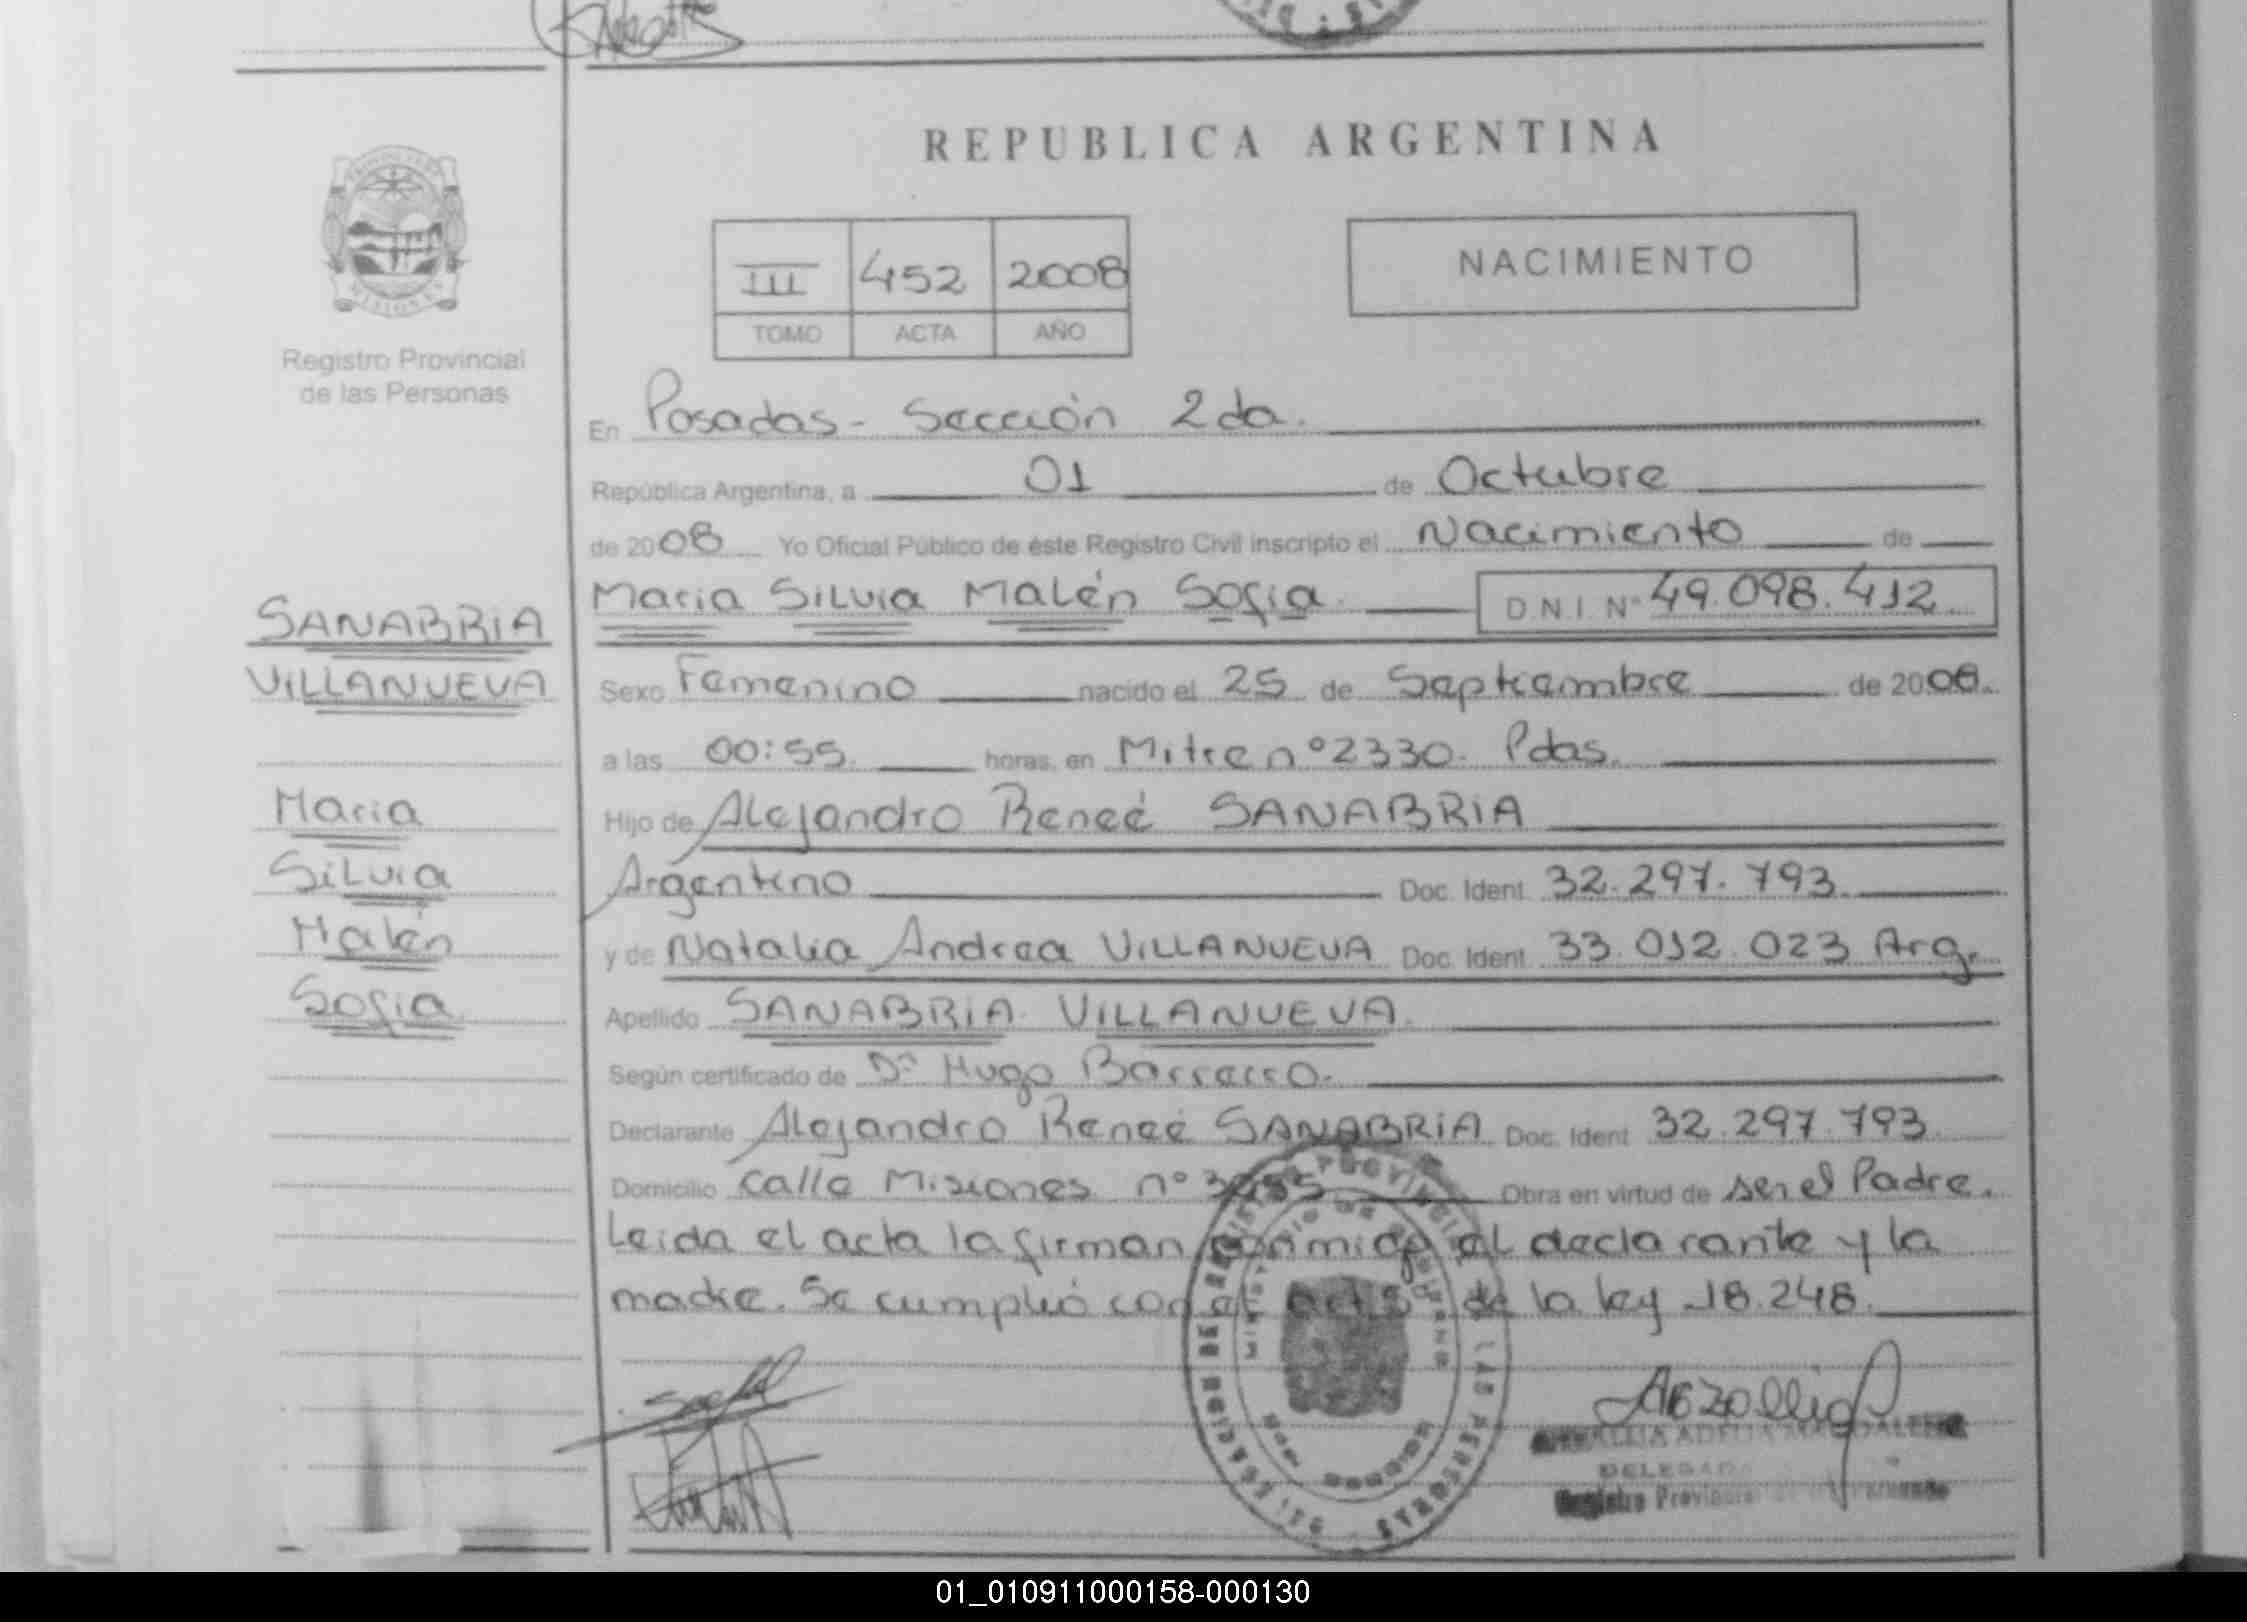 REPUBLICA ARGENTINA
III 452 2008
TOMO ACTA AÑO
NACIMIENTO
PROVINCIA
MISIONES
Registro Provincial
de las Personas
En Posadas - Sección 2da.
República Argentina, a 01 de Octubre
de 2008 Yo Oficial Público de éste Registro Civil inscripto el Nacimiento de
Maria Silvia Malén Sofia. D.N.I. Nº 49.098.412
Sexo Femenino nacido el 25 de Septiembre de 2008.
a las 00:55. horas, en Mitre nº 2330. Pdas.
Hijo de Alejandro Reneé SANABRIA
Argentino Doc. Ident. 32.297.793.
y de Natalia Andrea VILLANUEVA Doc. Ident. 33.012.023 Arg.
Apellido SANABRIA VILLANUEVA.
Según certificado de Dr. Hugo Barrerro.
Declarante Alejandro Reneé SANABRIA Doc. Ident. 32.297.793
Domicilio calle Misiones nº Obra en virtud de ser el Padre.
Leida el acta la firman conmigo el declarante y la
madre. Se cumplió con el de la ley 18.248.
SANABRIA
VILLANUEVA
Maria
Silvia
Malén
Sofia
ADELIA MAGDALENA
DELEGADA
Registro Provincial
01_010911000158-000130